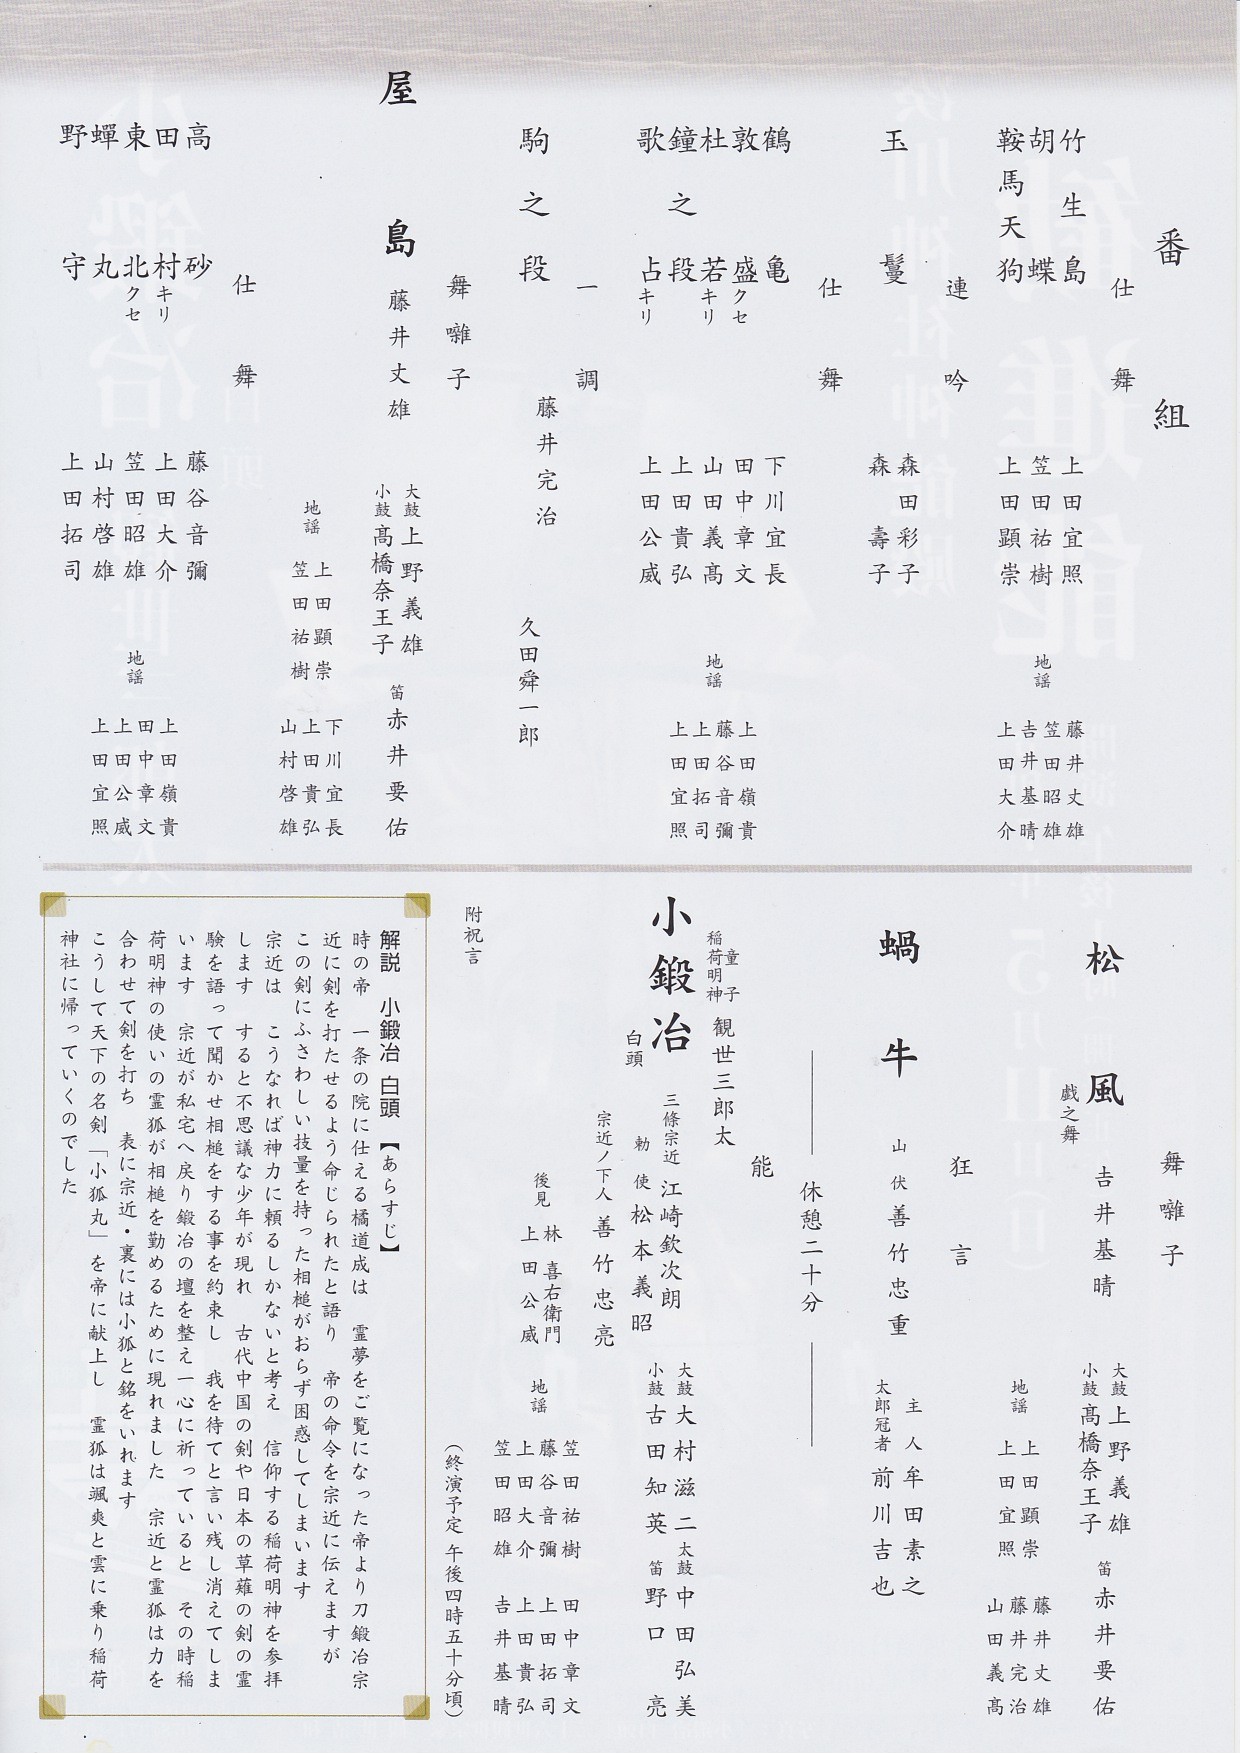 番組
仕舞
竹生島 上田宜照
胡蝶 笠田祐樹
鞍馬天狗 上田顕崇
地謡
藤井丈雄
笠田昭雄
吉井基晴
上田大介
連吟
玉鬘
森田彩子
森壽子
仕舞
鶴亀 下川宜長
敦盛クセ 田中章文
杜若キリ 山田義高
鐘之段 上田貴弘
歌占キリ 上田公威
地謡
上田嶺貴
藤谷音彌
上田拓司
上田宜照
一調
駒之段 藤井完治 久田舜一郎
舞囃子
屋島 藤井丈雄
大鼓 上野義雄
小鼓 髙橋奈王子
笛 赤井要佑
地謡
上田顕崇
笠田祐樹
下川宜長
上田貴弘
山村啓雄
仕舞
高砂 藤谷音彌
田村キリ 上田大介
東北クセ 笠田昭雄
蟬丸 山村啓雄
野守 上田拓司
地謡
上田嶺貴
田中章文
上田公威
上田宜照
舞囃子
松風 戯之舞 吉井基晴
大鼓 上野義雄
小鼓 髙橋奈王子
笛 赤井要佑
地謡
上田顕崇
上田宜照
藤井丈雄
藤井完治
山田義高
狂言
蝸牛
山伏 善竹忠重
主人 牟田素之
太郎冠者 前川吉也
休憩二十分
能
小鍛冶 白頭
童子
稲荷明神 観世三郎太
三條宗近 江崎欽次朗
勅使 松本義昭
宗近ノ下人 善竹忠亮
大鼓 大村滋二
小鼓 古田知英
太鼓 中田弘美
笛 野口亮
後見
林喜右衛門
上田公威
地謡
笠田祐樹
藤谷音彌
上田大介
笠田昭雄
田中章文
上田拓司
上田貴弘
吉井基晴
附祝言
(終演予定 午後四時五十分頃)
解説 小鍛冶 白頭 【あらすじ】
時の帝 一条の院に仕える橘道成は 霊夢をご覧になった帝より刀鍛冶宗
近に剣を打たせるよう命じられたと語り 帝の命令を宗近に伝えますが
この剣にふさわしい技量を持った相槌がおらず困惑してしまいます
宗近は こうなれば神力に頼るしかないと考え 信仰する稲荷明神を参拝
します すると不思議な少年が現れ 古代中国の剣や日本の草薙の剣の霊
験を語って聞かせ相槌をする事を約束し 我を待てと言い残し消えてしま
います 宗近が私宅へ戻り鍛冶の壇を整え一心に祈っていると その時稲
荷明神の使いの霊狐が相槌を勤めるために現れました 宗近と霊狐は力を
合わせて剣を打ち 表に宗近・裏には小狐と銘をいれます
こうして天下の名剣「小狐丸」を帝に献上し 霊狐は颯爽と雲に乗り稲荷
神社に帰っていくのでした